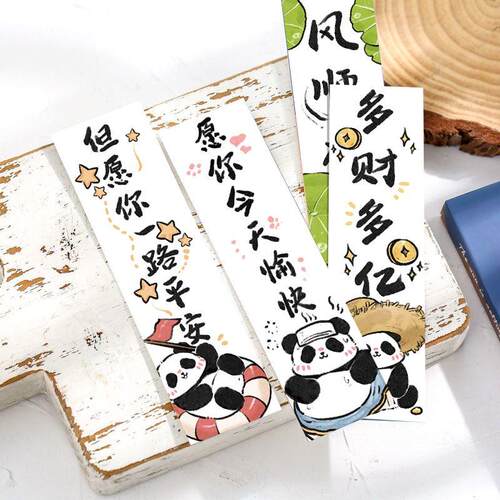 但愿你一路平安
愿你今天愉快
风顺
多财多亿